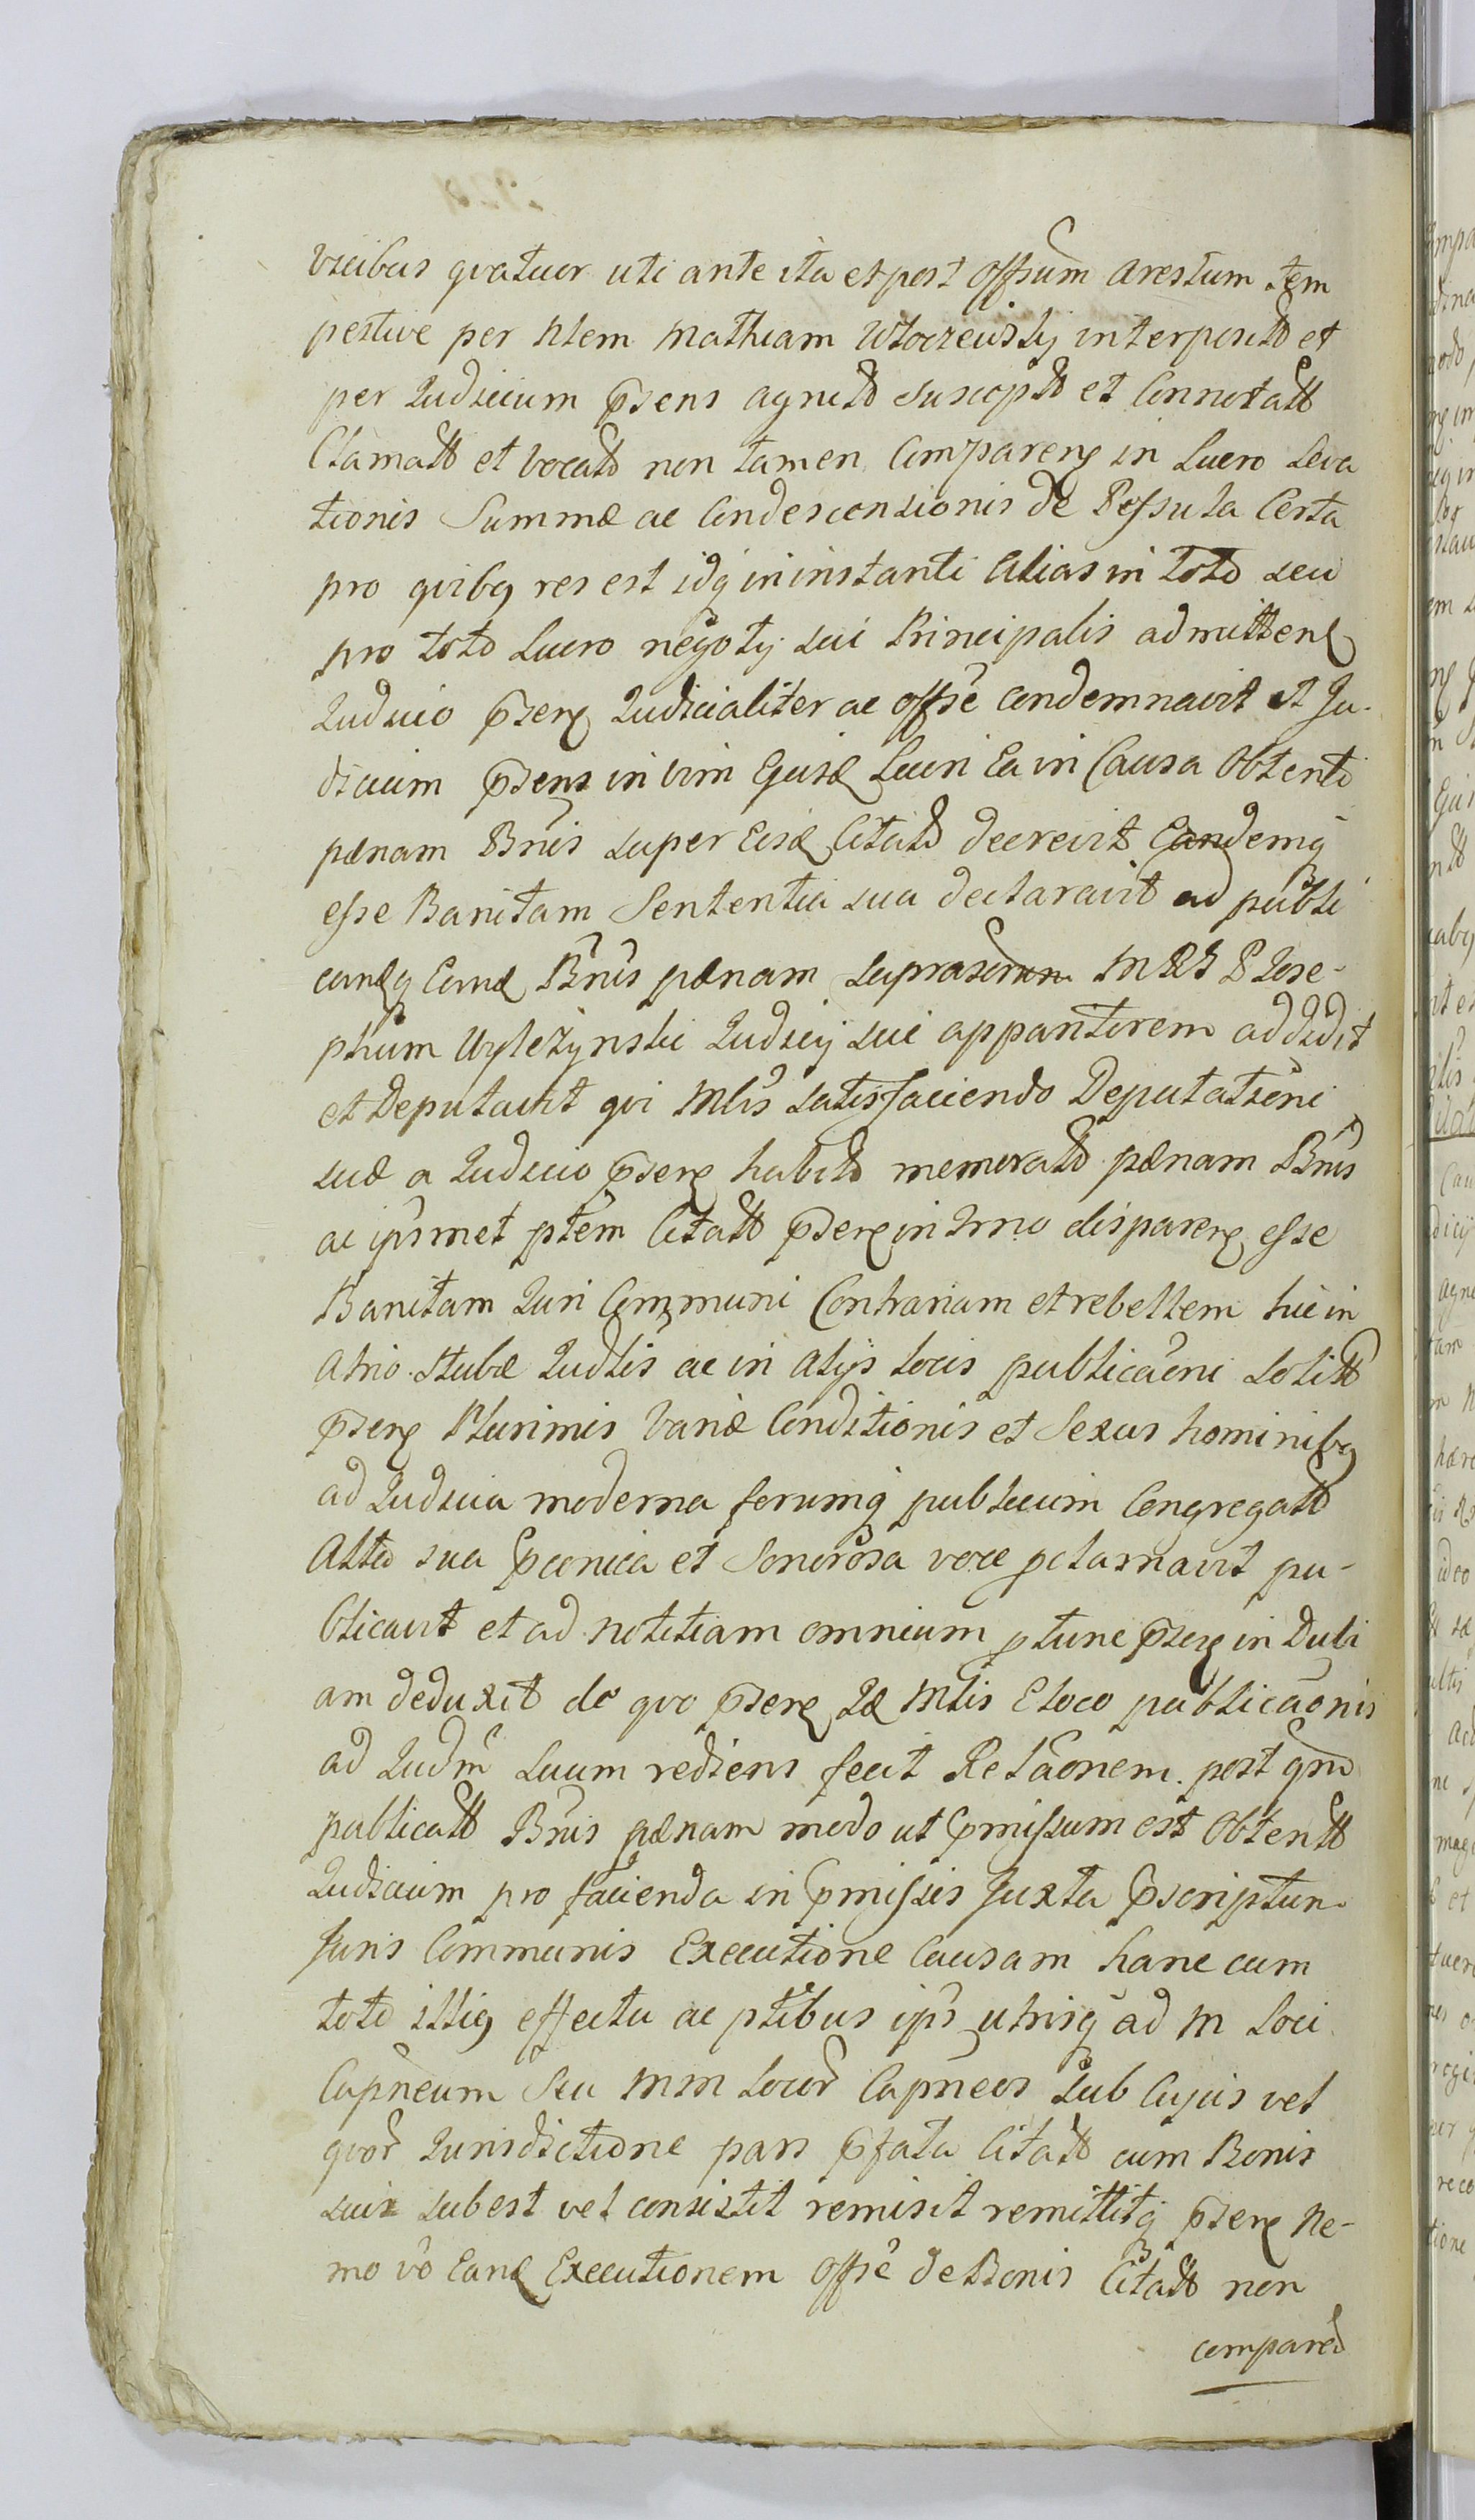 vicibus qvatuor uti ante ita et post Offsum Arestum tem
pestive per Nlem Mathiam Wloczewskij interposito et
per Judicium p̃sens agnito suscepto et Connotatto
Clamatto et vocato non tamen Comparenẽ in Lucro Leva
tionis Summæ ac Condescensionis de Possula Certa
pro qvibq res est idq in instanti Alias in toto seu
pro toto Lucro negotij sui Principalis admittenđ
Judicio p̃senẽ Judicialiter ac offse Condemnavit et Ju-
dicium p̃sens in vim Ejusđ Lucri Ea in Causa Obtenti
pænam Bnis super Eisđ Citato decrevit Eandemq
esse Banitam Sententia sua declaravit ad publi
candq Eand Bnis pænam Suprascriptam M R P Jose-
phum Wyleżynski Judicij sui apparitorem addidit
et Deputavit qvi Mlis satisfaciendo Deputationi
suæ a Judicio p̃senẽ habito memorato pænam Bnis
ac ipsmet ptem Citatt p̃senẽ in Trno disparenẽ esse
Banitam Juri Communi Contrariam et rebellem hic in
Atrio Stubæ Judlis ac in Alijs locis publicaõni Solitto
p̃senẽ Plurimis Variæ Conditionis et Sexus hominibq
ad Judicia moderna forumq publicum Congregatto
Alta sua p̃conica et Sonorosa voce pclamavit pu-
blicavit et ad notitiam omnium ptunc p̃senẽ in Dubi
am deduxit de qvo p̃senẽ Jd Mlis E loco publicaõnis
ad Judm suum rediens fecit Relaõnem. post qm
publicatt Bnis pænam modo ut p̃missum est Obtentt
Judicium pro facienda in p̃missis Juxta p̃scriptum
Juris Communis Executione Causam hanc cum
toto illiq effectu ac ptibus ips utrisq ad M Loci
Capneum Seu MM Locor Capneos Sub Cujus vel
qvor Jurisdictione pars p̃fata Citatt cum Bonis
suis subest vel consistit remisit remittitq p̃senẽ Ne-
mo vo Eand Executionem Offse de Bonis Citatt non
compared